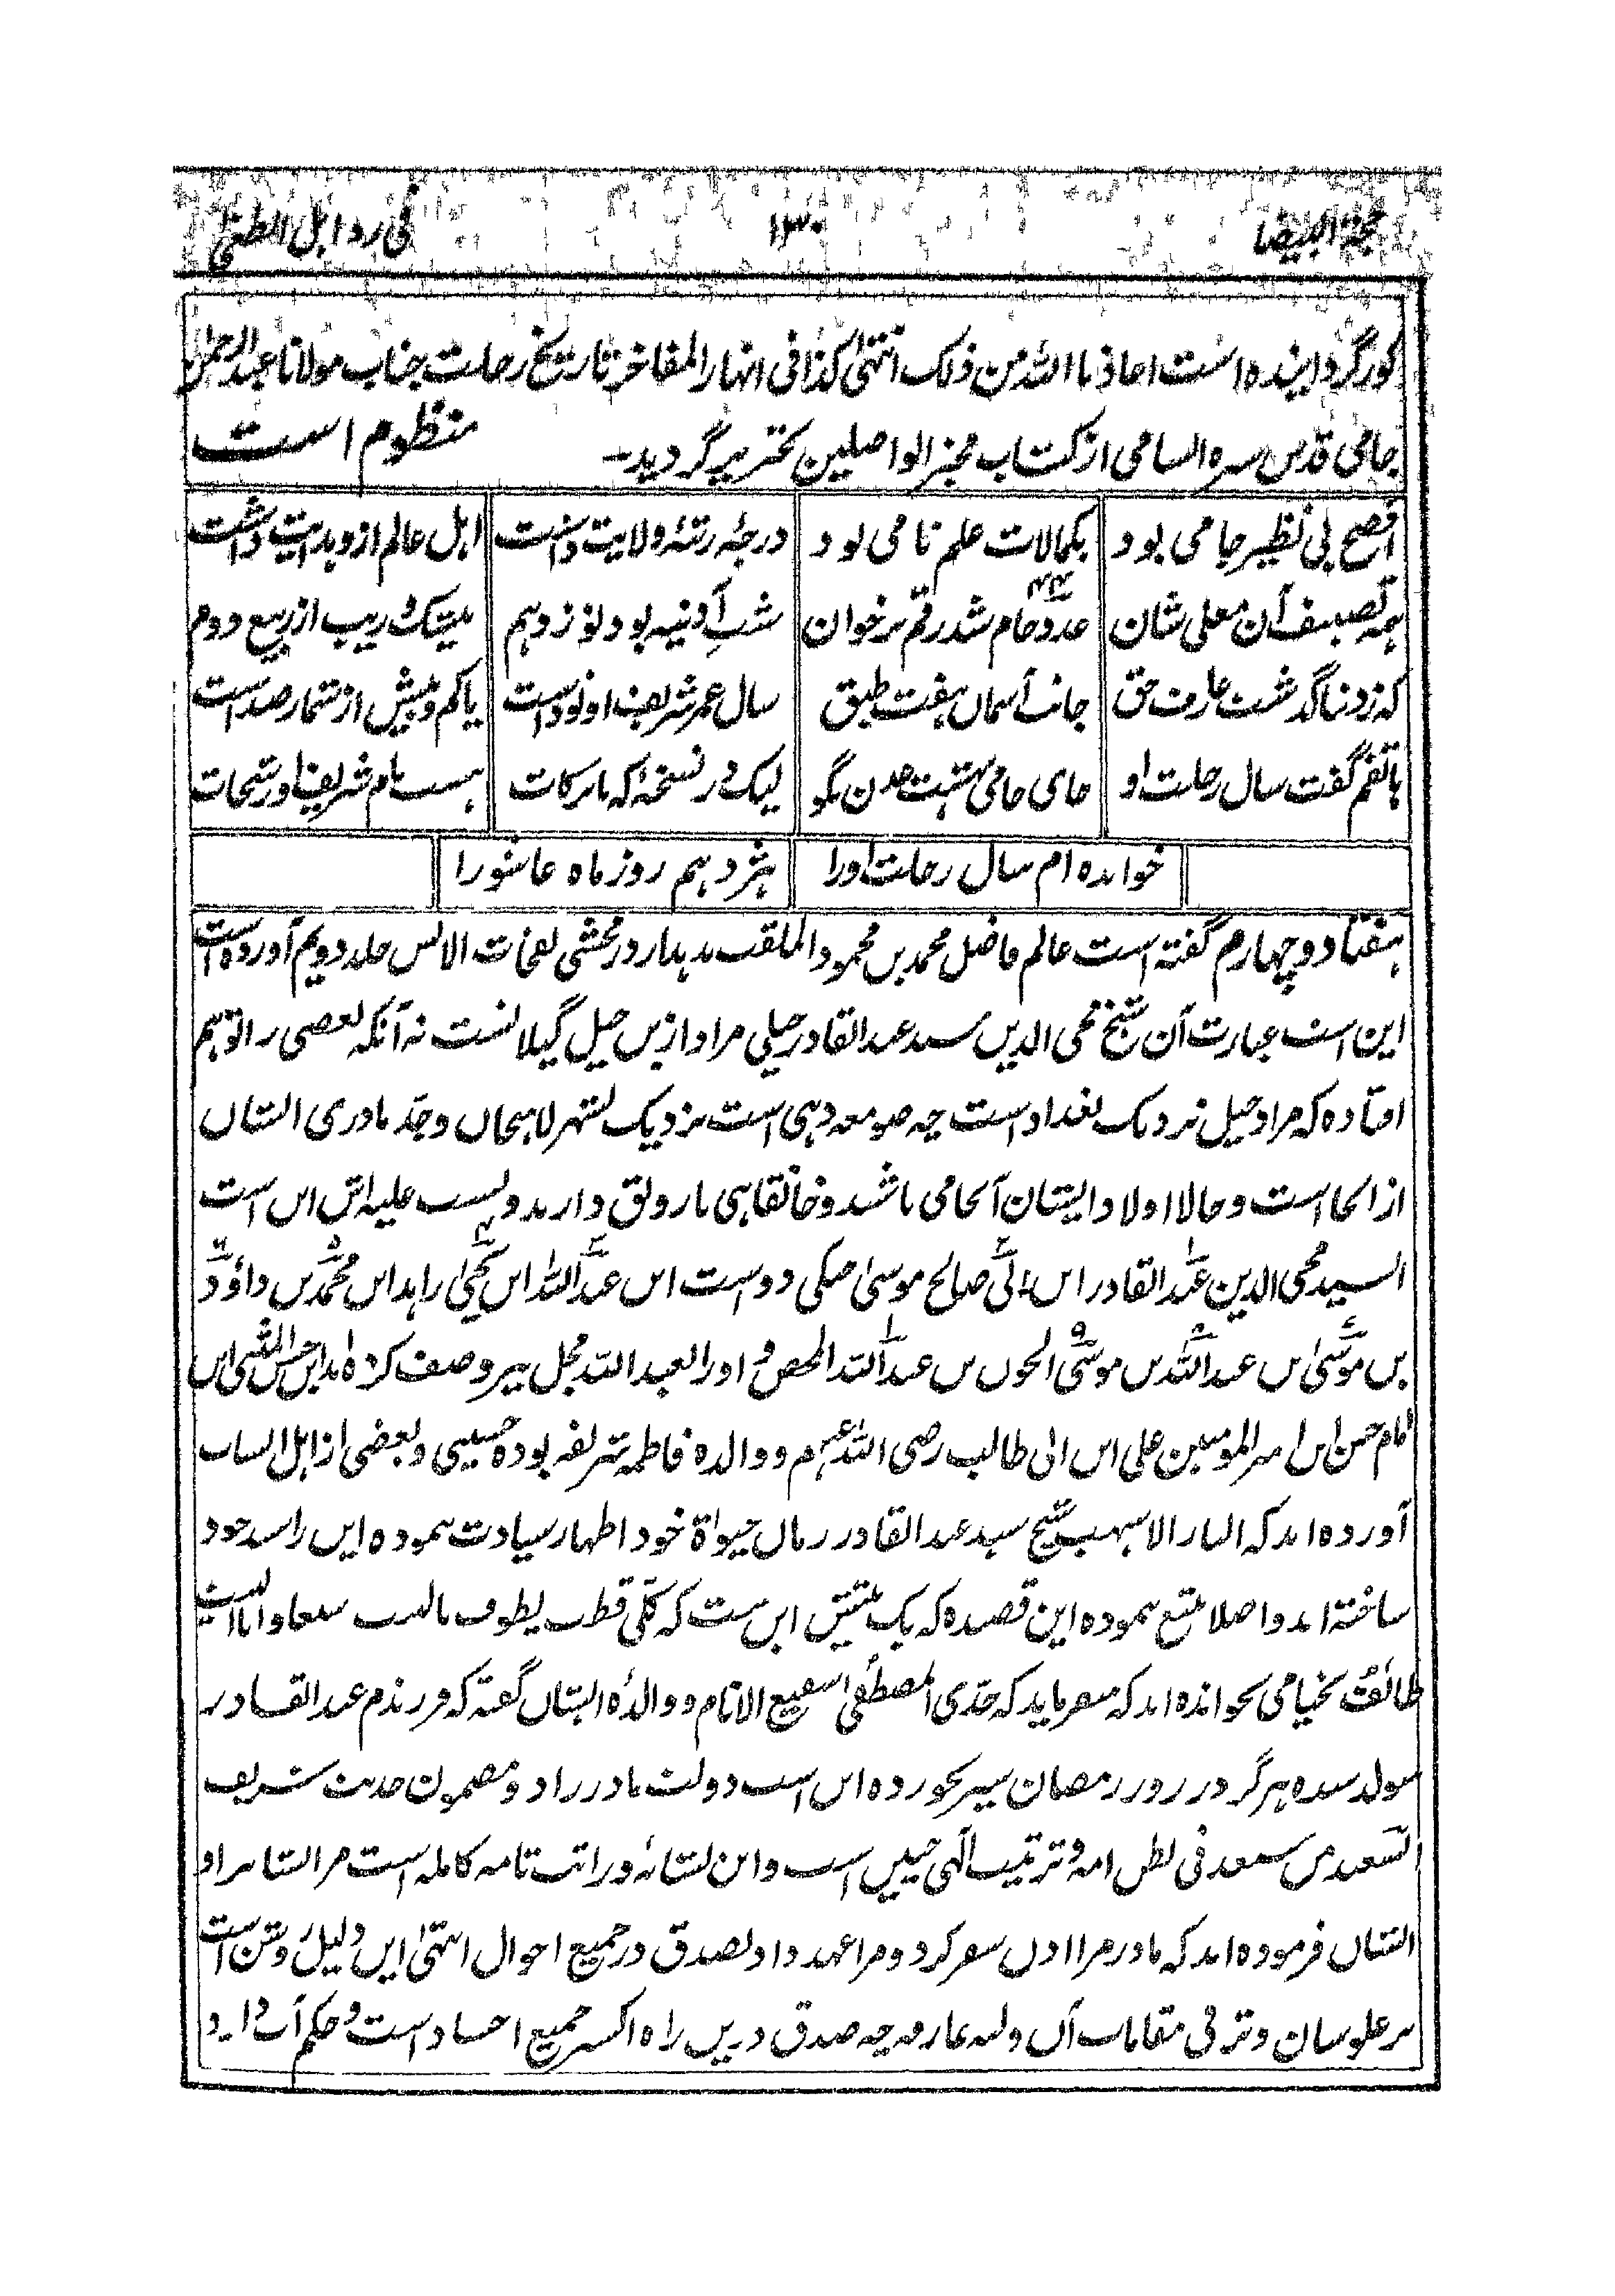 حجة البیضا ۱۳۰ فی رد اہل الطغیٰ
کور گردانیده است اعاذنا الله من ذلک انتهیٰ کذا فی انہار المفاخر تاریخ رحلت جناب مولانا عبدالرحمن
جامی قدس سره السامی از کتاب مخبر الواصلین تحریر گردید۔ منظوم است
افصح بی نظیر جامی بود بکمالات علم نامی بود درجۂ رتبۂ ولایت داشت اہل عالم ازو ہدایت داشت
ہمہ تصنیف آن معلی شان عدد جام شد رقم برخوان شب آدینہ بود نوزدہم بیشک و ریب از ربیع دوم
که ز دنیا گذشت عارف حق جانب آسمان ہفت طبق سال عمر شریف او نود است یا کم و بیش از شمار صد است
ہاتفم گفت سال رحلت او جای جامی بهشت عدن بگو لیک در نسخۂ که با برکات ہست نام شریف او رشحات
خوانده ام سال رحلت اورا ہژدہم روز ماه عاشورا
ہفتاد و چہارم گفته است عالم فاضل محمد بن محمود الملقب بدہدار در محشی نفحات الانس جلد دویم آورده است
این است عبارت آن شیخ محی الدین سید عبدالقادر جیلی مراد ازین جیل گیلانست نه آنکه بعضی را توہم
افتاده که مراد جیل نزدیک بغداد است چه صومعه دہی است نزدیک بشہر لاہیجان و جد مادری ایشان
از انجا است و حالا اولاد ایشان آنجامی باشند و خانقاہی با رونق دارند و نسب علیہ اش این است
السید محی الدین عبدالقادر ابن ابی صالح موسیٰ جنکی دوست ابن عبدالله ابن یحییٰ زاہد ابن محمد بن داؤد
بن موسیٰ بن عبدالله بن موسیٰ الجون بن عبدالله المحض و اورا بعبدالله مجل نیز وصف کرده اند ابن حسن المثنی ابن
امام حسن ابن امیر المومنین علی ابن ابی طالب رضی الله عنہم و والده فاطمہ شریفہ بوده حسینی و بعضی از اہل انساب
آورده اند که الباز الاشہب شیخ سید عبدالقادر زمان حیوٰة خود اظہار سیادت ننموده این را سند خود
ساخته اند و اصلا تتبع ننموده این قصیده که یک بیتش این ست که کلی قطب یطوف بالبیت سبعا و انا البیت
طائف بخیامی نخوانده اند که میفرماید که جدی المصطفی شفیع الانام و والدۂ ایشان گفته که فرزندم عبدالقادر
متولد شده ہرگز در روز رمضان شیر نخورده این است دولت مادر زاد و مضمون حدیث شریف
السعید من سعد فی بطن امه و تربیت آلہی چنین است و این نشانۂ وراثت تامه کامله است مر ایشانرا و
ایشان فرموده اند که مادر مرا اذن سفر کرد و مرا عہد داد بصدق در جمیع احوال انتہیٰ این دلیل روشن است
بر علو شان و ترقی مقامات آن ولیہ عارفہ چه صدق درین راه اکسیر جمیع اجساد است و حکم آن دارد